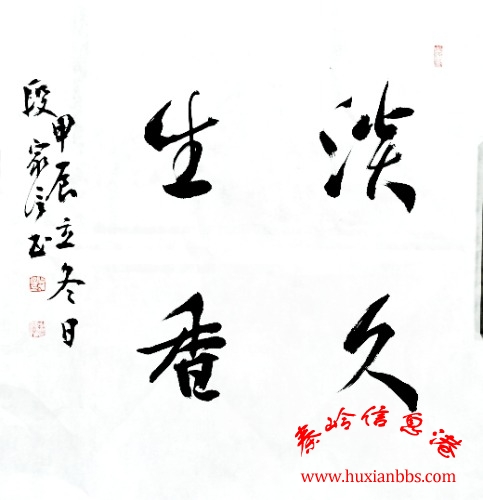 淡久
生香
甲辰立冬日
段家信书
秦岭信息港
www.huxianbbs.com